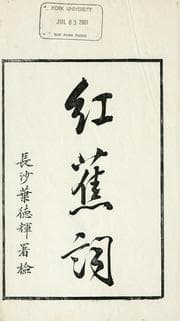 YORK UNIVERSITY
JUL 03 2001
紅蕉詞
長沙葉德輝署檢